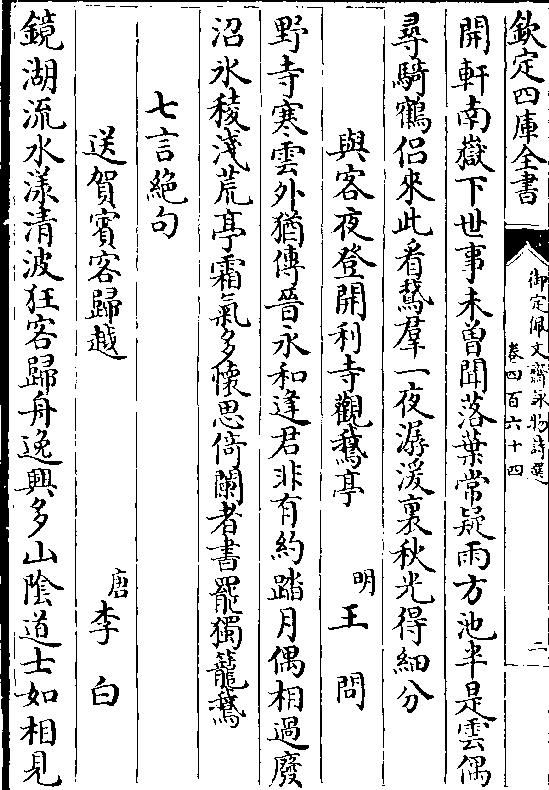 欽定四庫全書
御定佩文齋詠物詩選
卷四百六十四
二
開軒南嶽下世事未曽聞落葉常疑雨方池半是雲偶
尋騎鶴侣來此看鵞羣一夜潺湲裏秋光得細分
與客夜登開利寺觀鵝亭 明 王問
野寺寒雲外猶傳晉永和逢君非有約踏月偶相過廢
沼氷稜淺荒亭霜氣多懷思倚闌者書罷獨籠鵞
七言絶句
送賀賓客歸越 唐 李白
鏡湖流水漾清波狂客歸舟逸興多山陰道士如相見